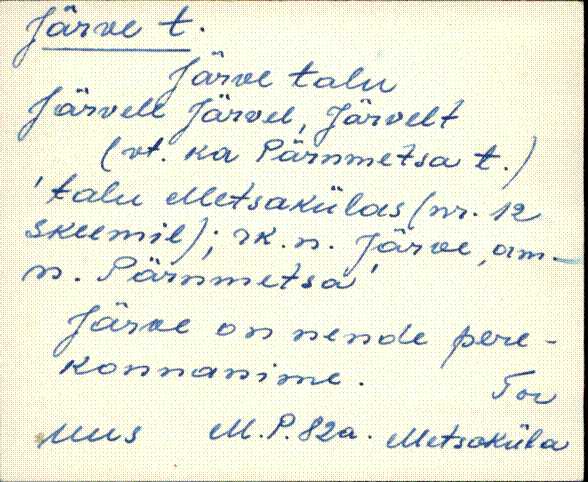 Järve t.
Järve talu
Järvele Järvel, Järvelt
(vt. ka Pärnmetsa t.)
'talu Metsakülas (nr. 12
skeemil); rk. n. Järve, am.-
n. Pärnmetsa'
Järve on nende pere-
konnanime.
Tor
Uus M.P. 82a. Metsaküla